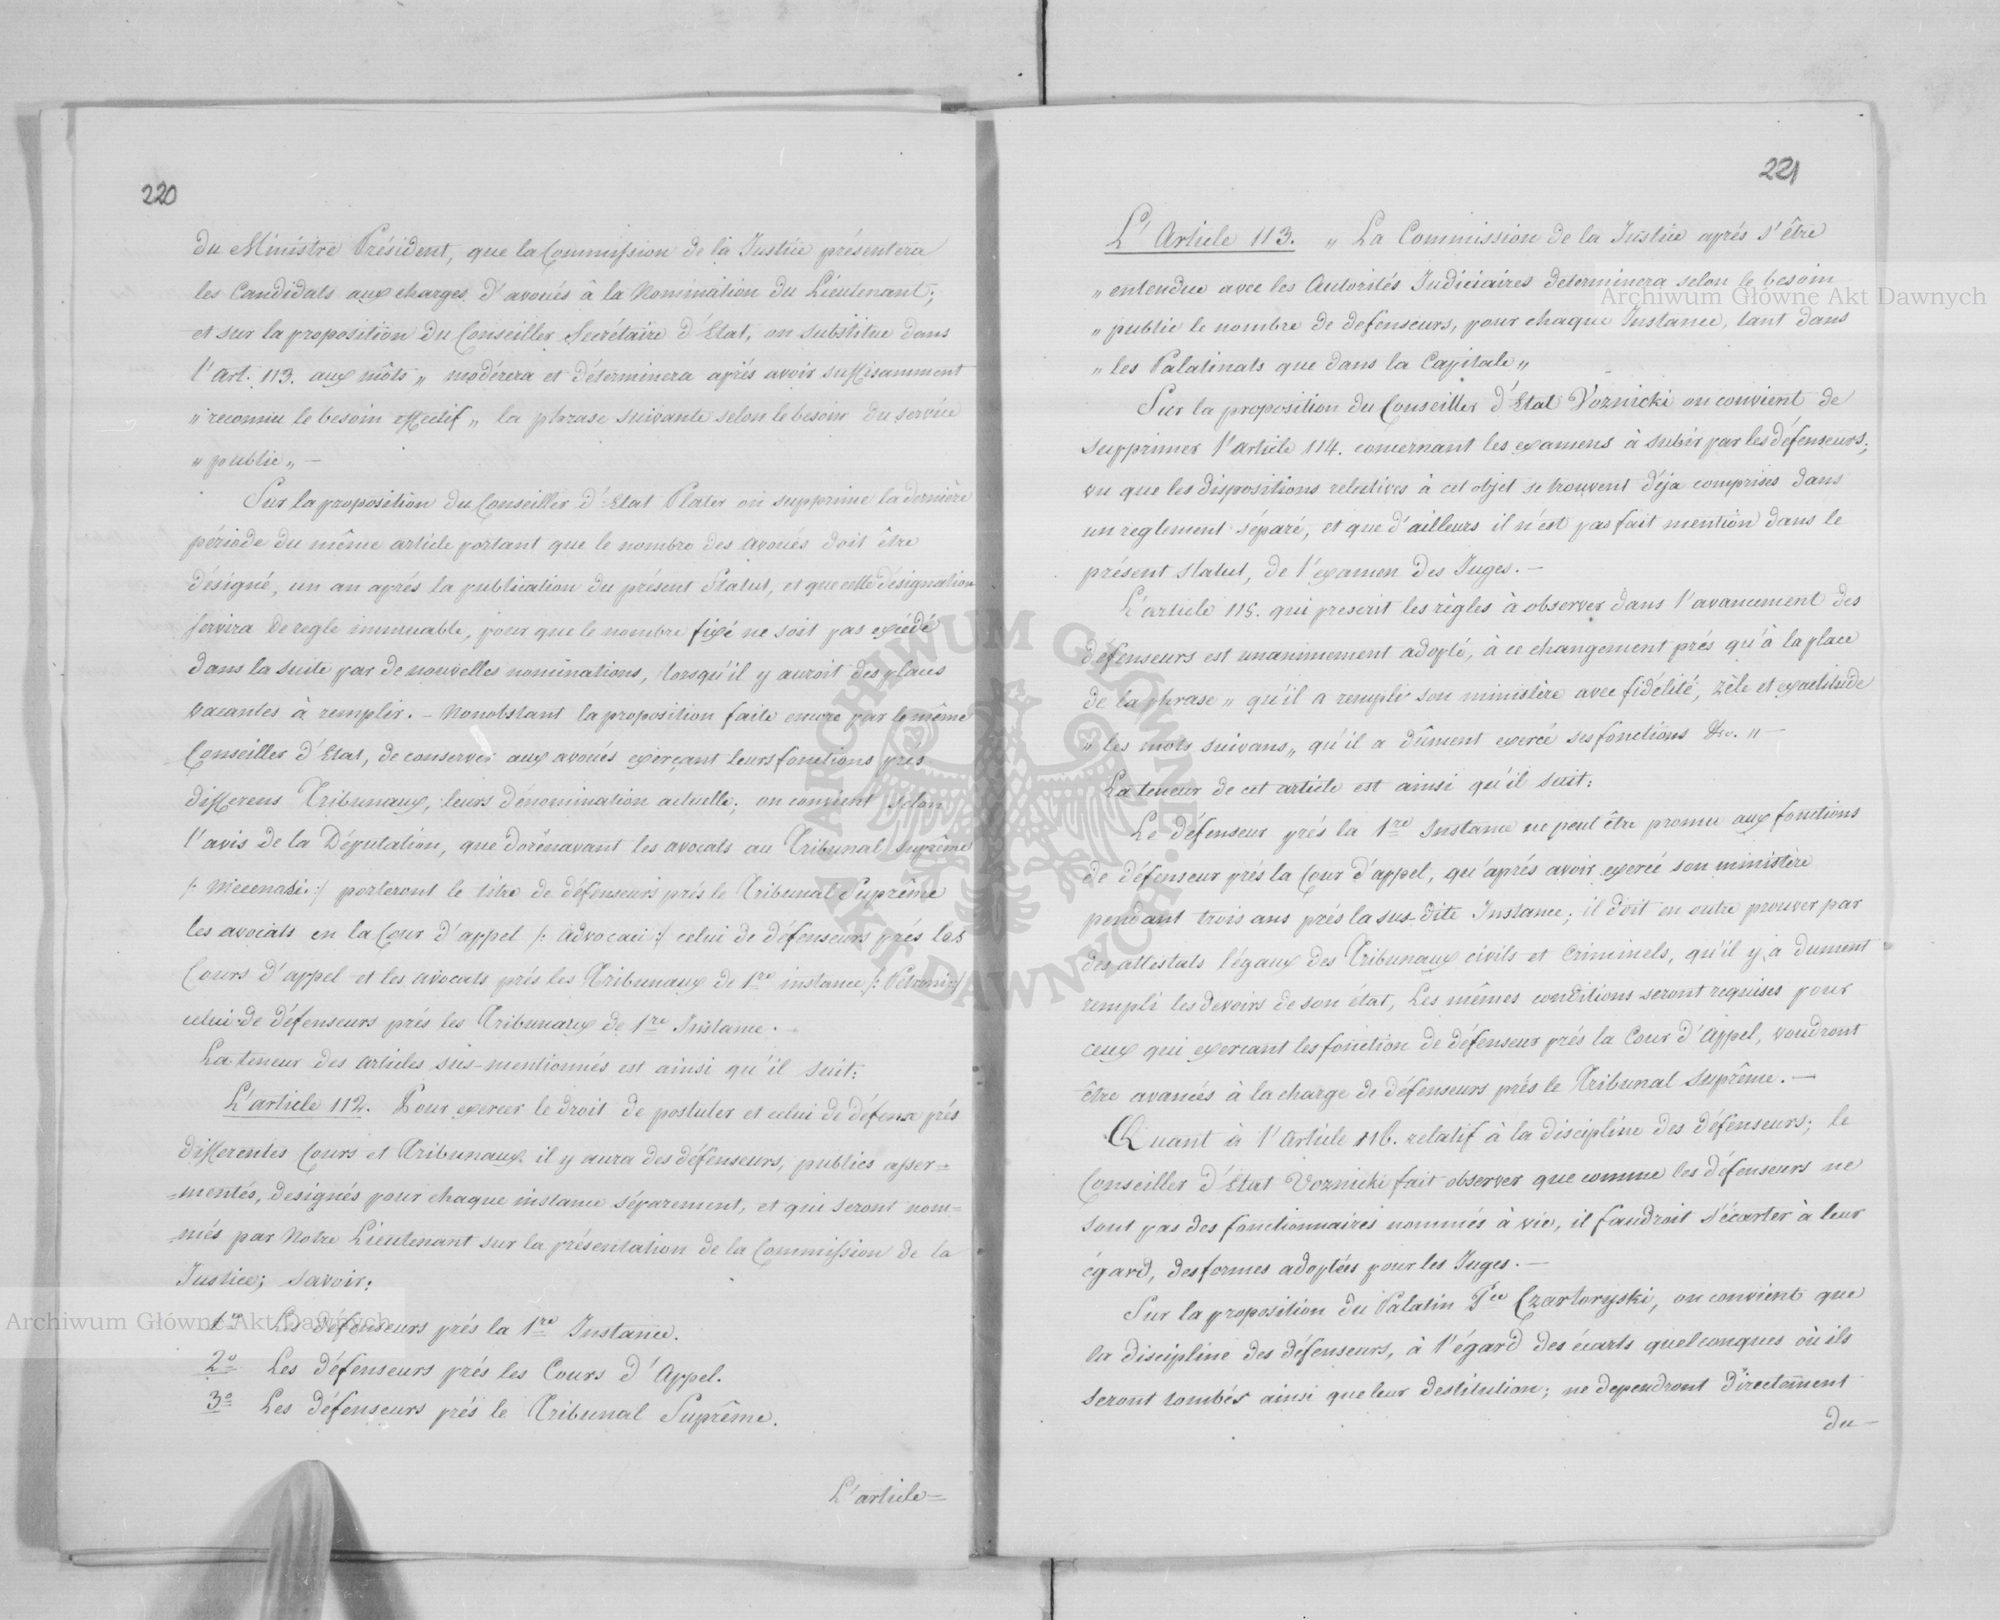 220
du Ministre Président, que la Commission de la Justice présentera
les Candidats aux charges d'avoués à la Nomination du Lieutenant;
et sur la proposition du Conseiller Secrétaire d'Etat, on substitue dans
l'Art. 113. aux môts „ modérera et déterminera aprés avoir suffisamment
„ reconnu le besoin effectif „ la phrase suivante selon le besoin du service
„ public „ —
Sur la proposition du Conseiller d'Etat Plater on supprime la derniere
période du même article portant que le nombre des avoués doit être
désigné, un an aprés la publication du présent Statut, et que cette désignation
servira de regle immuable, pour que le nombre fixé ne soit pas excédé
dans la suite par de nouvelles nominations, lorsqu'il y auroit des places
vacantes à remplir. — Nonobstant la proposition faite encore par le même
Conseiller d'Etat, de conserver aux avoués exerçant leurs fonctions prés
differens Tribunaux, leurs dénomination actuelle; on convient selon
l'avis de la Députation, que dorénavant les avocats au Tribunal suprême
/: Mecenasi :/ porteront le titre de défenseurs prés le Tribunal Suprême
les avocats en la Cour d'appel /: Advocaci :/ celui de défenseurs prés les
Cours d'appel et les avocats prés les Tribunaux de 1re instance /: Patroni :/
celui de défenseurs prés les Tribunaux de 1re Instance. —
La teneur des articles sus-mentionnés est ainsi qu'il suit:
L'article 112. Pour exercer le droit de postuler et celui de défense prés
differentes Cours et Tribunaux il y aura des défenseurs, publics asser=
=mentés, designés pour chaque instance séparement, et qui seront nom=
=més par Notre Lieutenant sur la présentation de la Commission de la
Justice; savoir:
1o Les défenseurs prés la 1re Instance.
2o Les défenseurs prés les Cours d'Appel.
3o Les défenseurs prés le Tribunal Suprême.
L'article =
221
L'Article 113. „ La Commission de la Justice aprés s'être
„ entendue avec les Autorités Judiciaires déterminera selon le besoin
„ public le nombre de defenseurs, pour chaque Instance, tant dans
„ les Palatinats que dans la Capitale „
Sur la proposition du Conseiller d'Etat Voznicki on convient de
supprimer l'article 114. concernant les examens à subir par les défenseurs;
vu que les dispositions relatives à cet objet se trouvent déja comprises dans
un reglement séparé, et que d'ailleurs il n'est pas fait mention dans le
présent statut, de l'examen des Juges. —
L'article 115. qui prescrit les règles à observer dans l'avancement des
défenseurs est unanimement adopté, à ce changement prés qu'à la place
de la phrase „ qu'il a rempli son ministère avec fidélité, zèle et exactitude
„ les mots suivans „ qu'il a dûment exercé ses fonctions &c. „ —
La teneur de cet article est ainsi qu'il suit:
Le défenseur prés la 1re Instance ne peut être promu aux fonctions
de défenseur prés la Cour d'appel, qu'aprés avoir exercé son ministère
pendant trois ans prés la sus-dite Instance; il doit en outre prouver par
des attestats légaux des Tribunaux civils et criminels, qu'il y a dument
rempli les devoirs de son état, Les mêmes conditions seront requises pour
ceux qui exercant les fonction de défenseur prés la Cour d'Appel, voudront
être avancés à la charge de défenseurs prés le Tribunal suprême. —
Quant à l'Article 116. relatif à la discipline des défenseurs; le
Conseiller d'Etat Voznicki fait observer que comme les défenseurs ne
sont pas des fonctionnaires nommés à vie, il faudroit s'écarter à leur
égard, des formes adoptées pour les Juges. —
Sur la proposition du Palatin Pce Czartoryski, on convient que
la discipline des défenseurs, à l'égard des écarts quelconques où ils
seront tombés ainsi que leur destitution; ne dependront directement
du —
Archiwum Główne Akt Dawnych
Archiwum Główne Akt Dawnych
ARCHIWUM GŁÓWNE AKT DAWNYCH